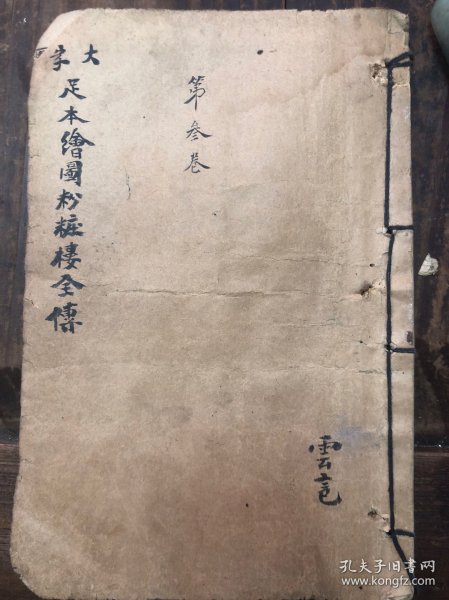 大字
足本繪圖粉粧樓全傳
第叁卷
雲
孔夫子旧书网
www.kongfz.com